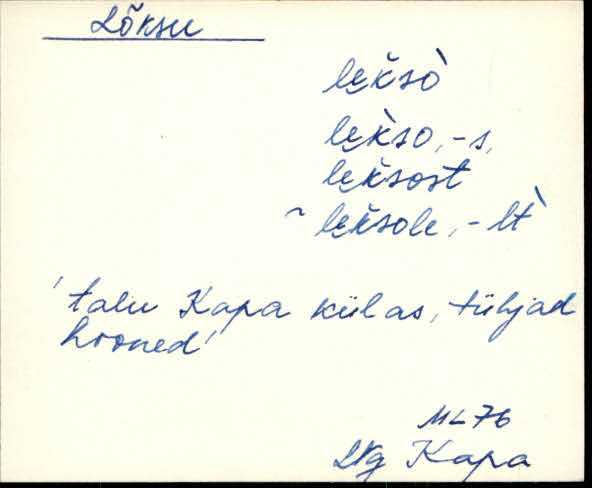 Lõksu
lek̆sò
lek̀so, -s,
lek̆sost
~ lek̆sole, -lt̀
'talu Kapa külas, tühjad
hooned'
ML 76
Kapa